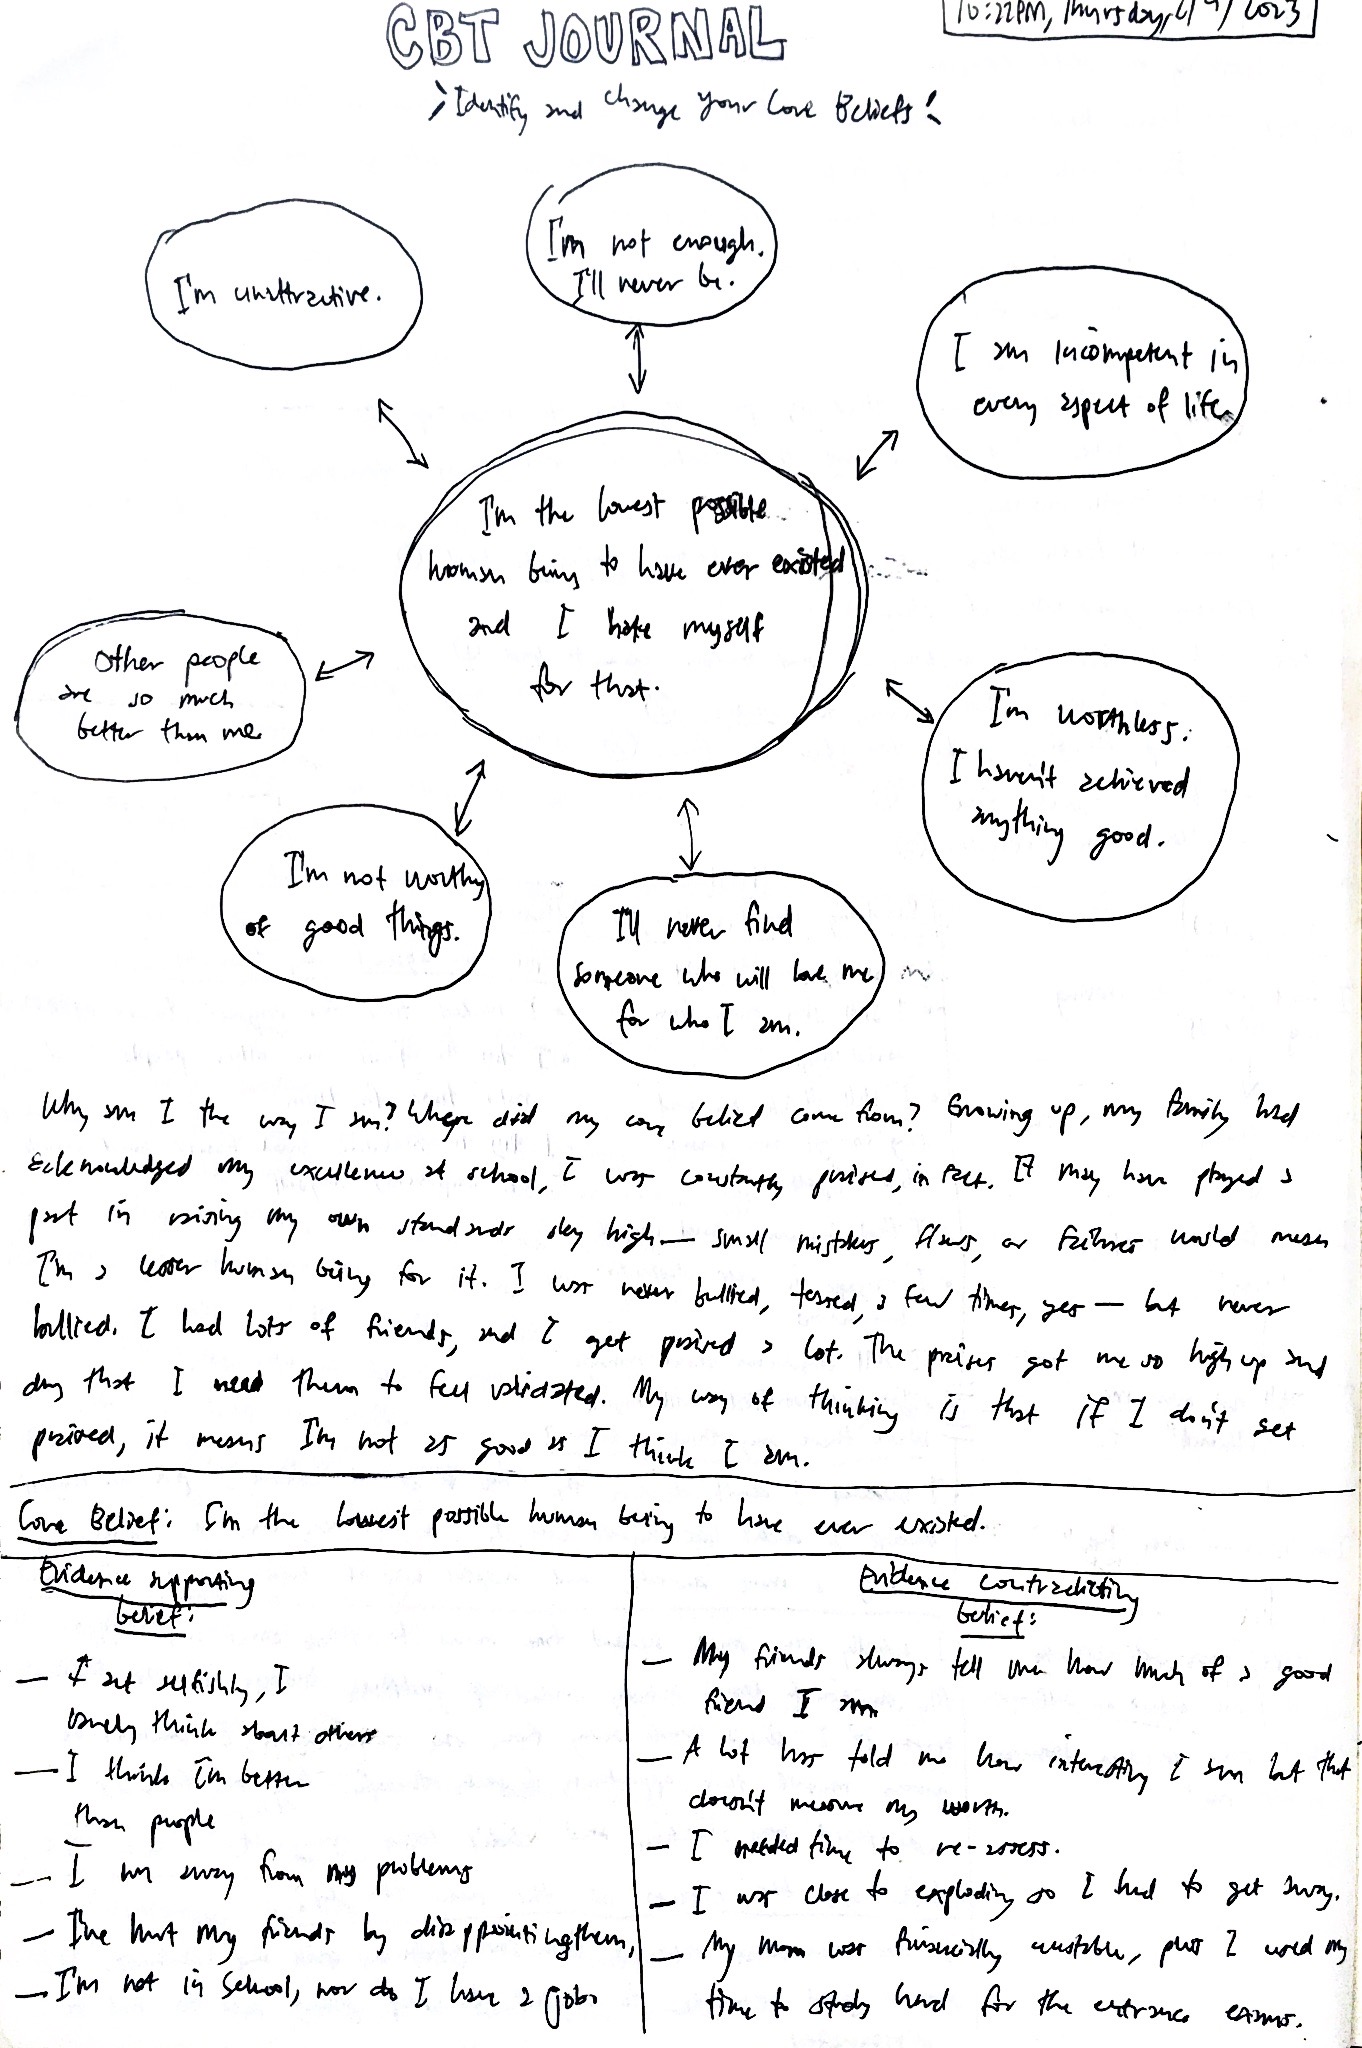 10:22PM, Thursday,
CBT JOURNAL
Identify and change your Core Beliefs!
I'm unattractive.
I'm not enough.
I'll never be.
I am incompetent in
every aspect of life.
I'm the lowest possible
human being to have ever existed
and I hate myself
for that.
Other people
are so much
better than me.
I'm worthless.
I haven't achieved
anything good.
I'm not worthy
of good things.
I'll never find
someone who will love me
for who I am.
Why am I the way I am? Where did my core belief come from? Growing up, my family had
acknowledged my excellence at school, I was constantly praised, in fact. It may have played a
part in raising my own standards sky high — small mistakes, flaws, or failures would mean
I'm a lesser human being for it. I was never bullied, teased, a few times, yes — but never
bullied. I had lots of friends, and I get praised a lot. The praises got me so high up and
dry that I need them to feel validated. My way of thinking is that if I don't get
praised, it means I'm not as good as I think I am.
Core Belief: I'm the lowest possible human being to have ever existed.
Evidence supporting
belief:
— I act selfishly, I
rarely think about others
— I think I'm better
than people
— I run away from my problems
— I've hurt my friends by disappointing them,
— I'm not in school, nor do I have a job.
Evidence contradicting
belief:
— My friends always tell me how much of a good
friend I am
— A lot has told me how interesting I am but that
doesn't measure my worth.
— I needed time to re-assess.
— I was close to exploding so I had to get away.
— My mom was financially unstable, plus I used my
time to study hard for the entrance exams.